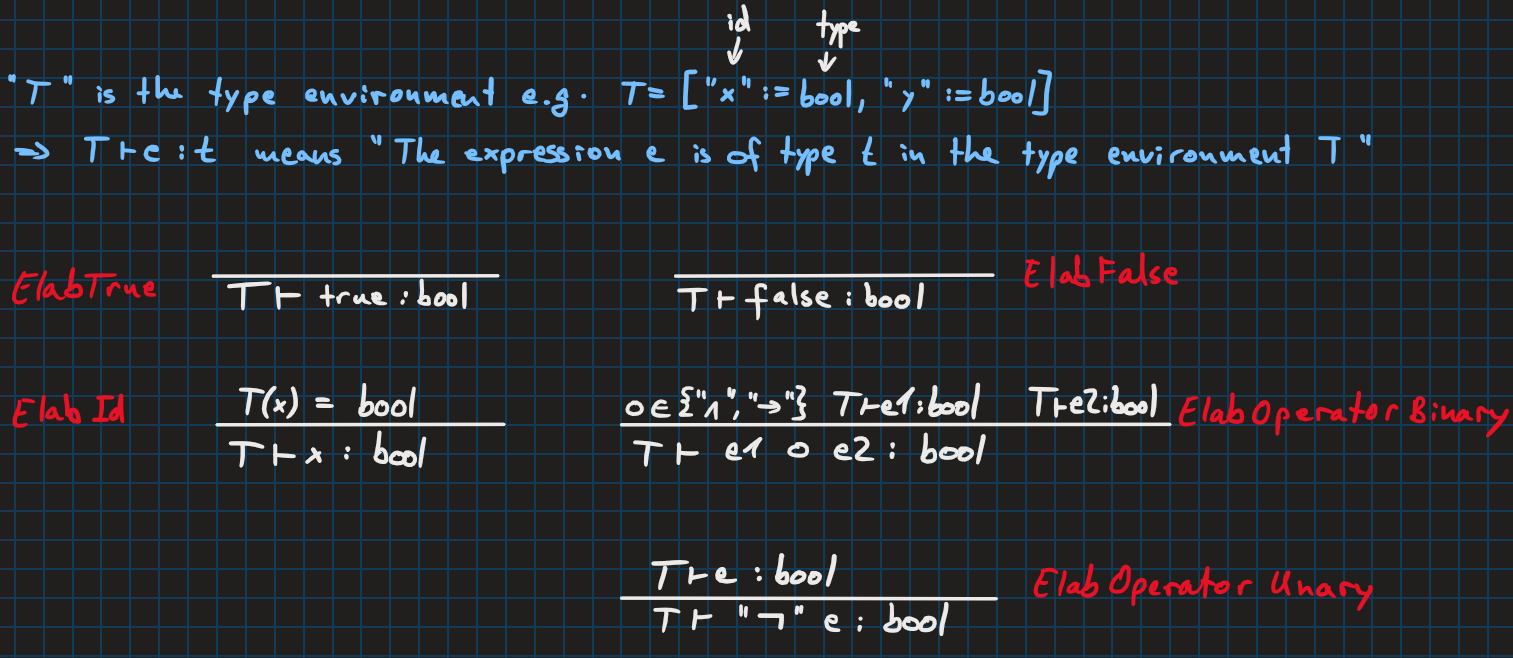 id type
"T" is the type environment e.g. T = ["x" := bool, "y" := bool]
⇒ T ⊢ e : t means "The expression e is of type t in the type environment T"
ElabTrue
T ⊢ true : bool
T ⊢ false : bool
ElabFalse
ElabId
T(x) = bool
T ⊢ x : bool
o ∈ {"∧", "→"} T ⊢ e1 : bool T ⊢ e2 : bool
T ⊢ e1 o e2 : bool
ElabOperatorBinary
T ⊢ e : bool
T ⊢ "¬" e : bool
ElabOperatorUnary